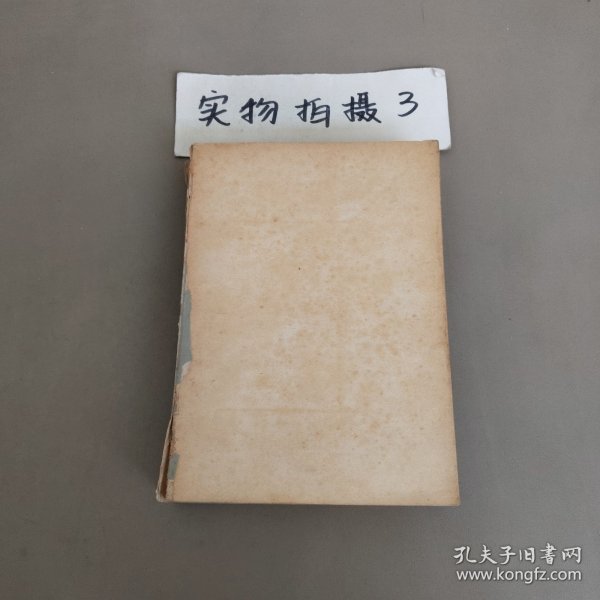 实物拍摄3
孔夫子旧書网
www.kongfz.com